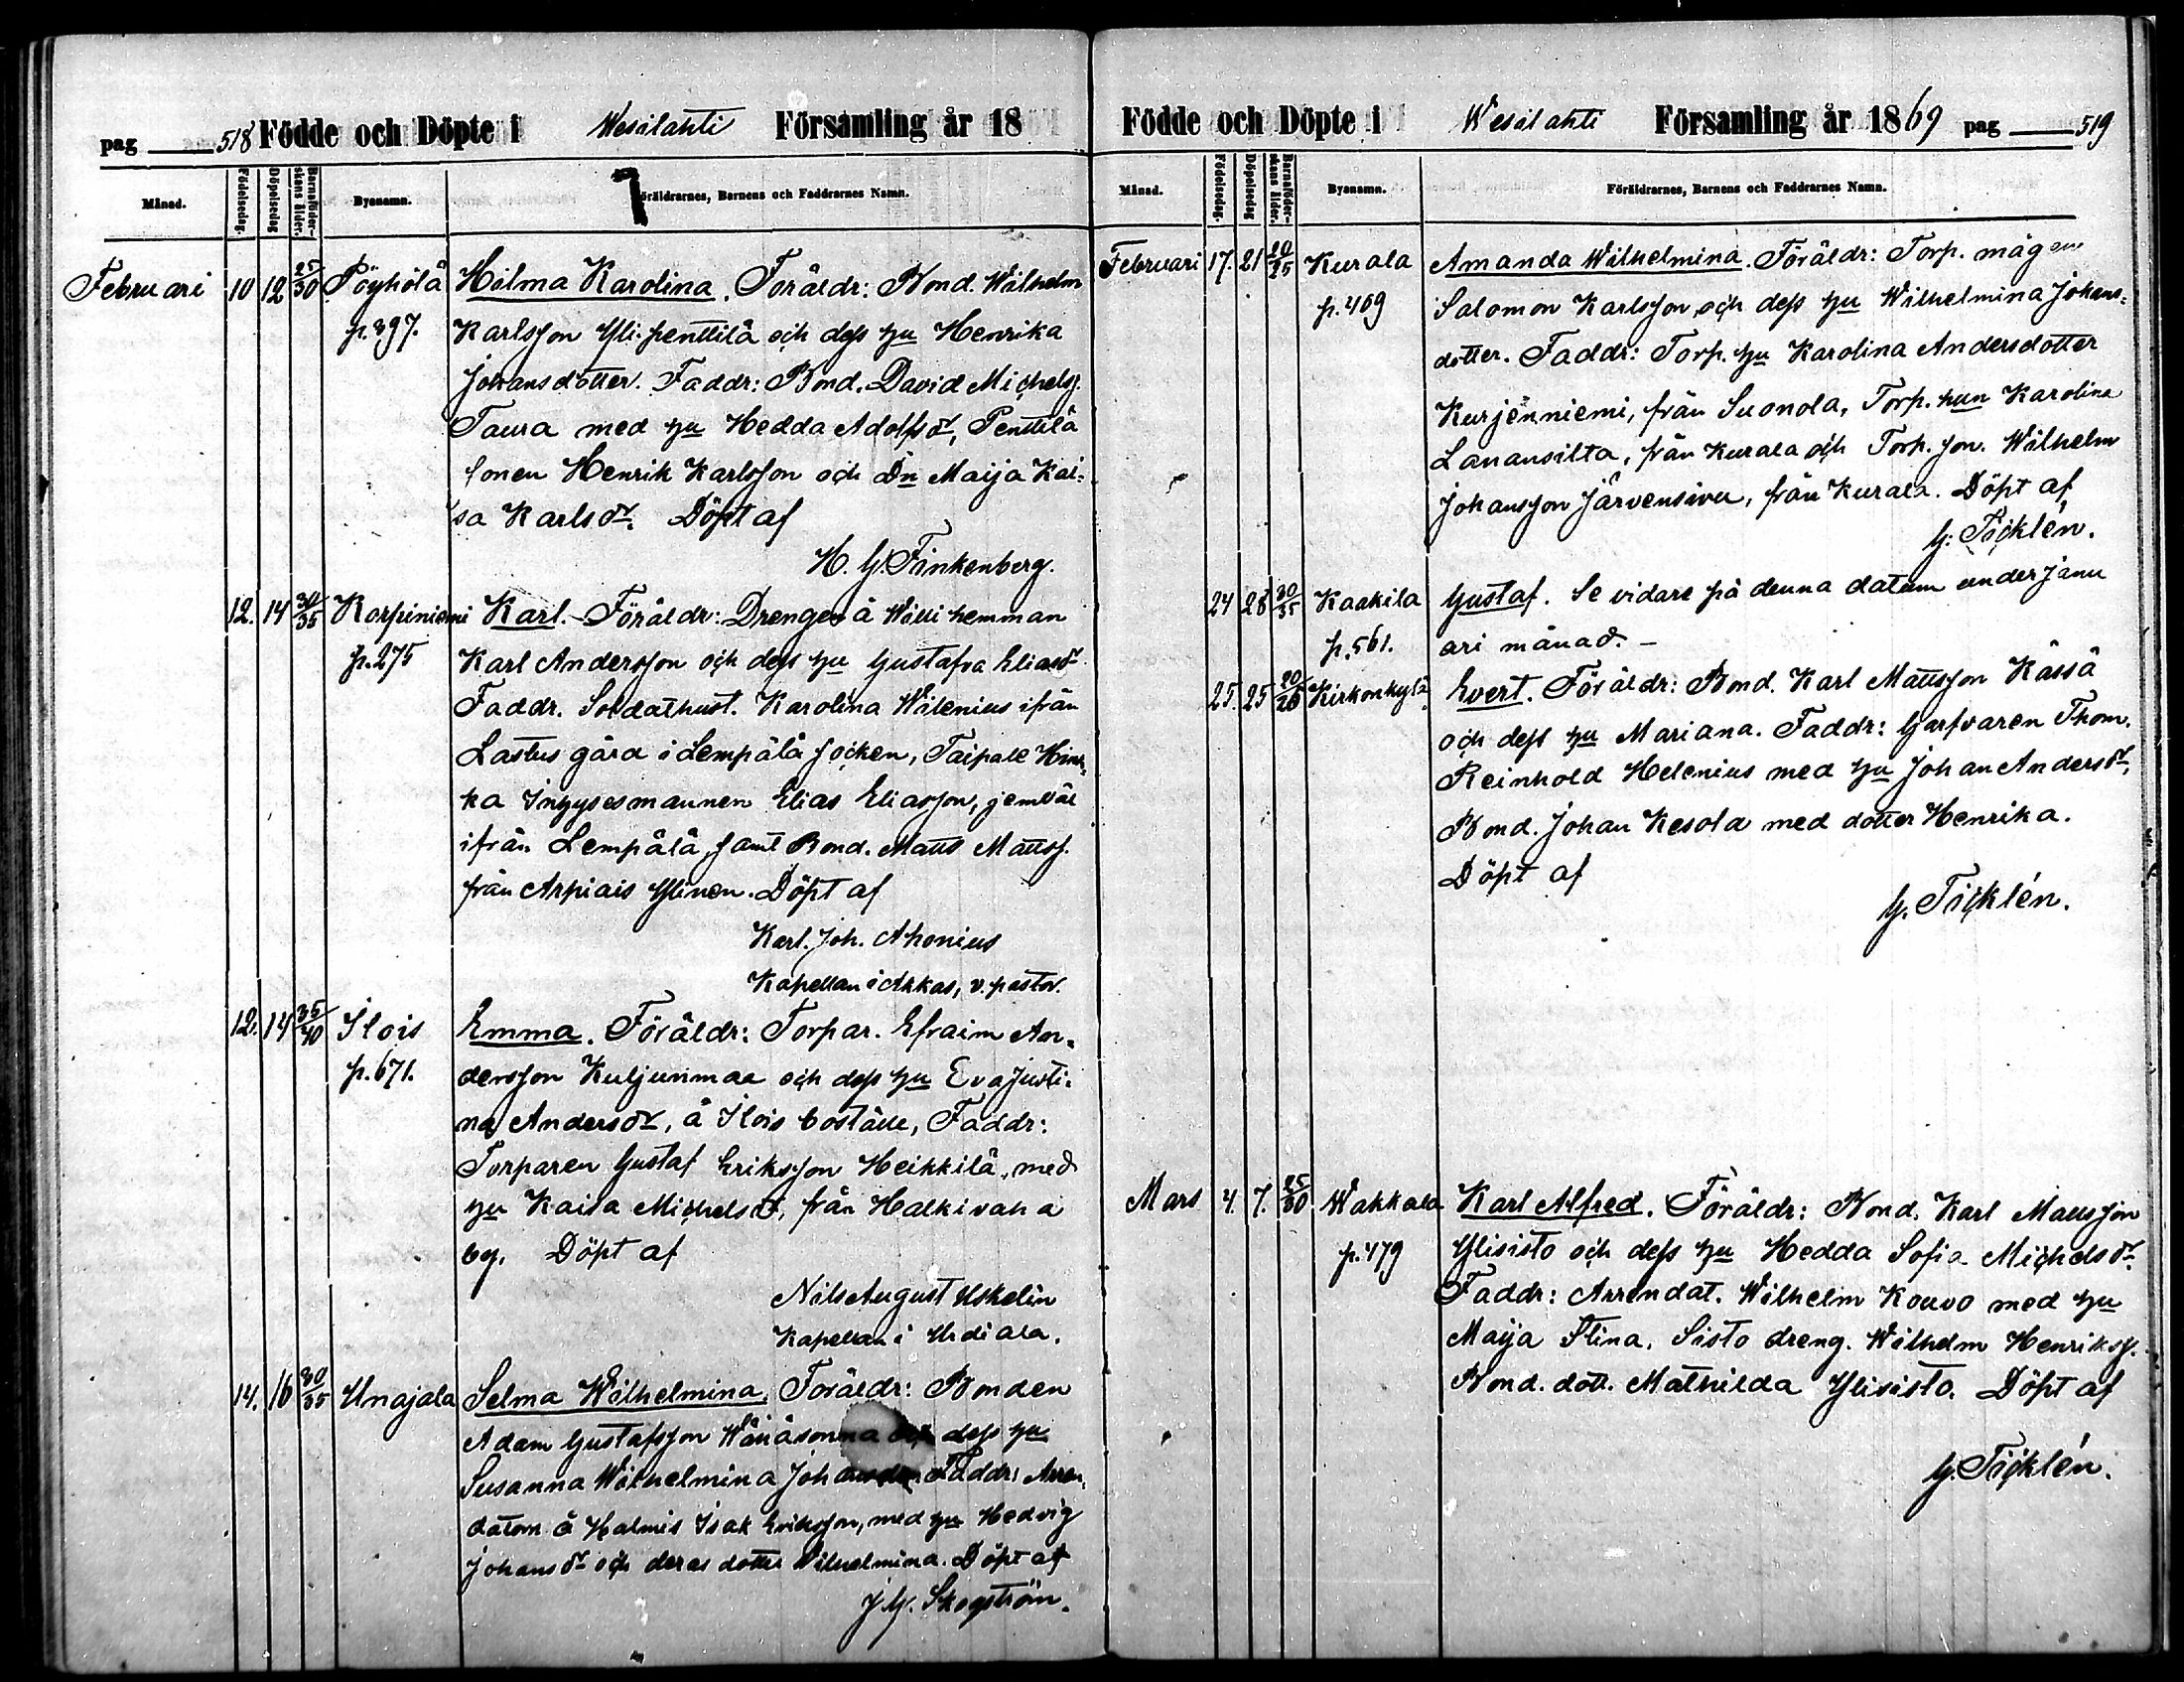 pag 518 Födde och Döpte i Wesilahti Församling år 18
Månad. Födelsedag. Döpelsedag Barnaföderskans ålder. Bysnamn. Föräldrarnes, Barnens och Faddrarnes Namn.
Februari 10 12 25/30 Pöyhölä Hilma Karolina. Föräldr: Bond. Wilhelm
p.397. Karlsson Yli-penttilä och dess hu Henrika
Johansdotter. Faddr: Bond. David Michelss.
Taura med hu Hedda Adolfsdr, Penttilä
sonen Henrik Karlsson och Dn Maija Kai-
sa Karlsdr. Döpt af
H. G. Finkenberg.
12. 14 30/35 Korpiniemi Karl. Föräldr: Drengen å Wälli hemman
p.275 Karl Andersson och dess hu Gustafva Eliasdr
Faddr. Soldathust. Karolina Wälenius ifrån
Lastus gård i Lempälä socken, Taipale Hinn-
ka Inhysesmannen Elias Eliasson, jemväl
ifrån Lempälä, samt Bond. Matts Mattss.
från Arpiais Ylinen. Döpt af
Karl. Joh. Ahonius
Kapellan i Akkas, v. pastor.
12. 14 35/40 Ilois Emma. Föräldr: Torpar. Efraim An-
p.671. dersson Kuljunmaa och dess hu Eva Justi-
na Andersdr, å Ilois boställe, Faddr:
Torparen Gustaf Eriksson Heikkilä, med
hu Kaisa Michelsdr, från Halkivaha
by. Döpt af
Nils August Uskelin
Kapellan i Urdiala.
14. 16 30/35 Unajala Selma Wilhelmina. Föräldr: Bonden
Adam Gustafsson och dess hu
Susanna Wilhelmina Faddr: Arren-
datorn å Halmis Isak Eriksson, med hu Hedvig
Johansdr och deras dotter Wilhelmina. Döpt af
J. G. Skogström.
Födde och Döpte i Wesilahti Församling år 1869 pag 519
Månad. Födelsedag. Döpelsedag Barnaföderskans ålder. Bysnamn. Föräldrarnes, Barnens och Faddrarnes Namn.
Februari 17. 21 20/25 Kurala Amanda Wilhelmina. Föräldr: Torp. mågen
p.409 Salomon Karlsson, och dess hu Wilhelmina Johans-
dotter. Faddr: Torp. hu Karolina Andersdotter
Kurjenniemi, från Suonola, Torp. hun Karolina
Lanansilta, från Kurala och Torp. son. Wilhelm
Johansson Järvensivu, från Kurala. Döpt af
G. Ticklén.
24 28 30/35 Kaakila Gustaf. Se vidare på denna datum under Janu
p.561. ari månad. –
25. 25 20/25 Kirkonkylä Evert. Föräldr: Bond. Karl Mattsson Kässä
och dess hu Mariana. Faddr: Garfvaren Thom.
Reinhold Helenius med hu Johan Andersdr,
Bond. Johan Kesola med dotter Henrika.
Döpt af
G. Ticklén.
Mars 4. 7. 25/30 Wakkala Karl Alfred. Föräldr: Bond. Karl Mattsson
p.479 Ylisisto och dess hu Hedda Sofia Michelsdr.
Faddr: Arrendat. Wilhelm Kouvo med hu
Maija Stina, Sisto dreng. Wilhelm Henrikss.
Bond. dott. Mathilda Ylisisto. Döpt af
G. Ticklén.